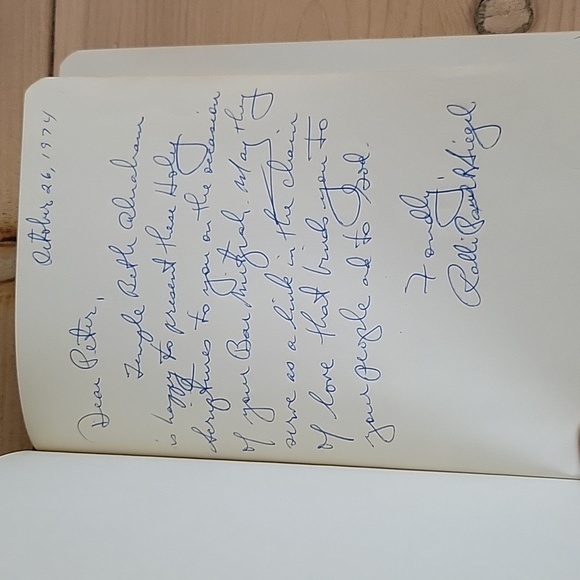 October 26, 1974
Dear Peter,
Temple Beth Abraham
is happy to present these Holy
Scriptures to you on the occasion
of your Bar Mitzvah. May they
serve as a link in the chain
of love that binds you to
your people and to God.
Fondly,
Rabbi Paul R Siegel